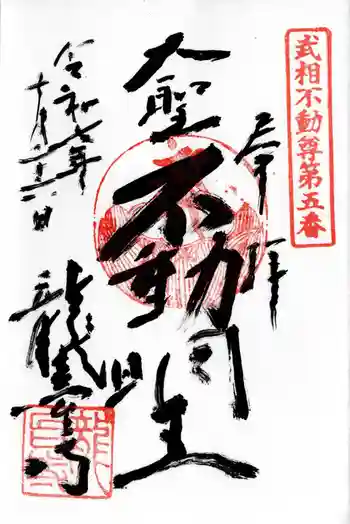 武相不動尊第五番
奉拝
大聖不動明王
龍
令和七年
十月二十六日